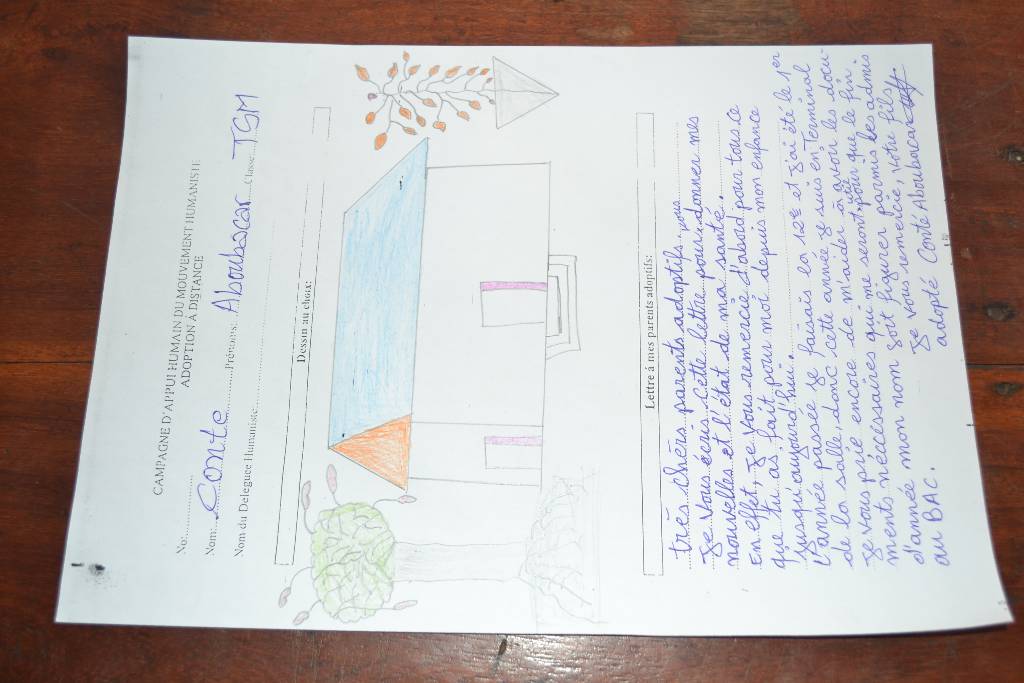 CAMPAGNE D'APPUI HUMAIN DU MOUVEMENT HUMANISTE
ADOPTION À DISTANCE
No:
Nom: Conte Prénoms: Aboubacar Classe: TSM
Nom du Deleguee Humaniste
Dessin au choix:
Lettre á mes parents adoptifs:
très chèrs parents adoptifs.
Je vous écris cette lettre pour vous donner mes
nouvelles et l'état de ma santé.
En effet, je vous remercie d'abord pour tous ce
que tu as fait pour moi depuis mon enfance
jusqu'aujourd'hui.
L'année passée je faisais la 12e et j'ai été le 1er
de la salle, donc cette année je suis en Terminal
je vous prie encore de m'aider à avoir les docu-
ments nécessaires qui me seront utile pour que le fin
d'année mon nom soit figurer parmis les admis
au BAC. Je vous remercie, votre fils
adopté Conté Aboubacar